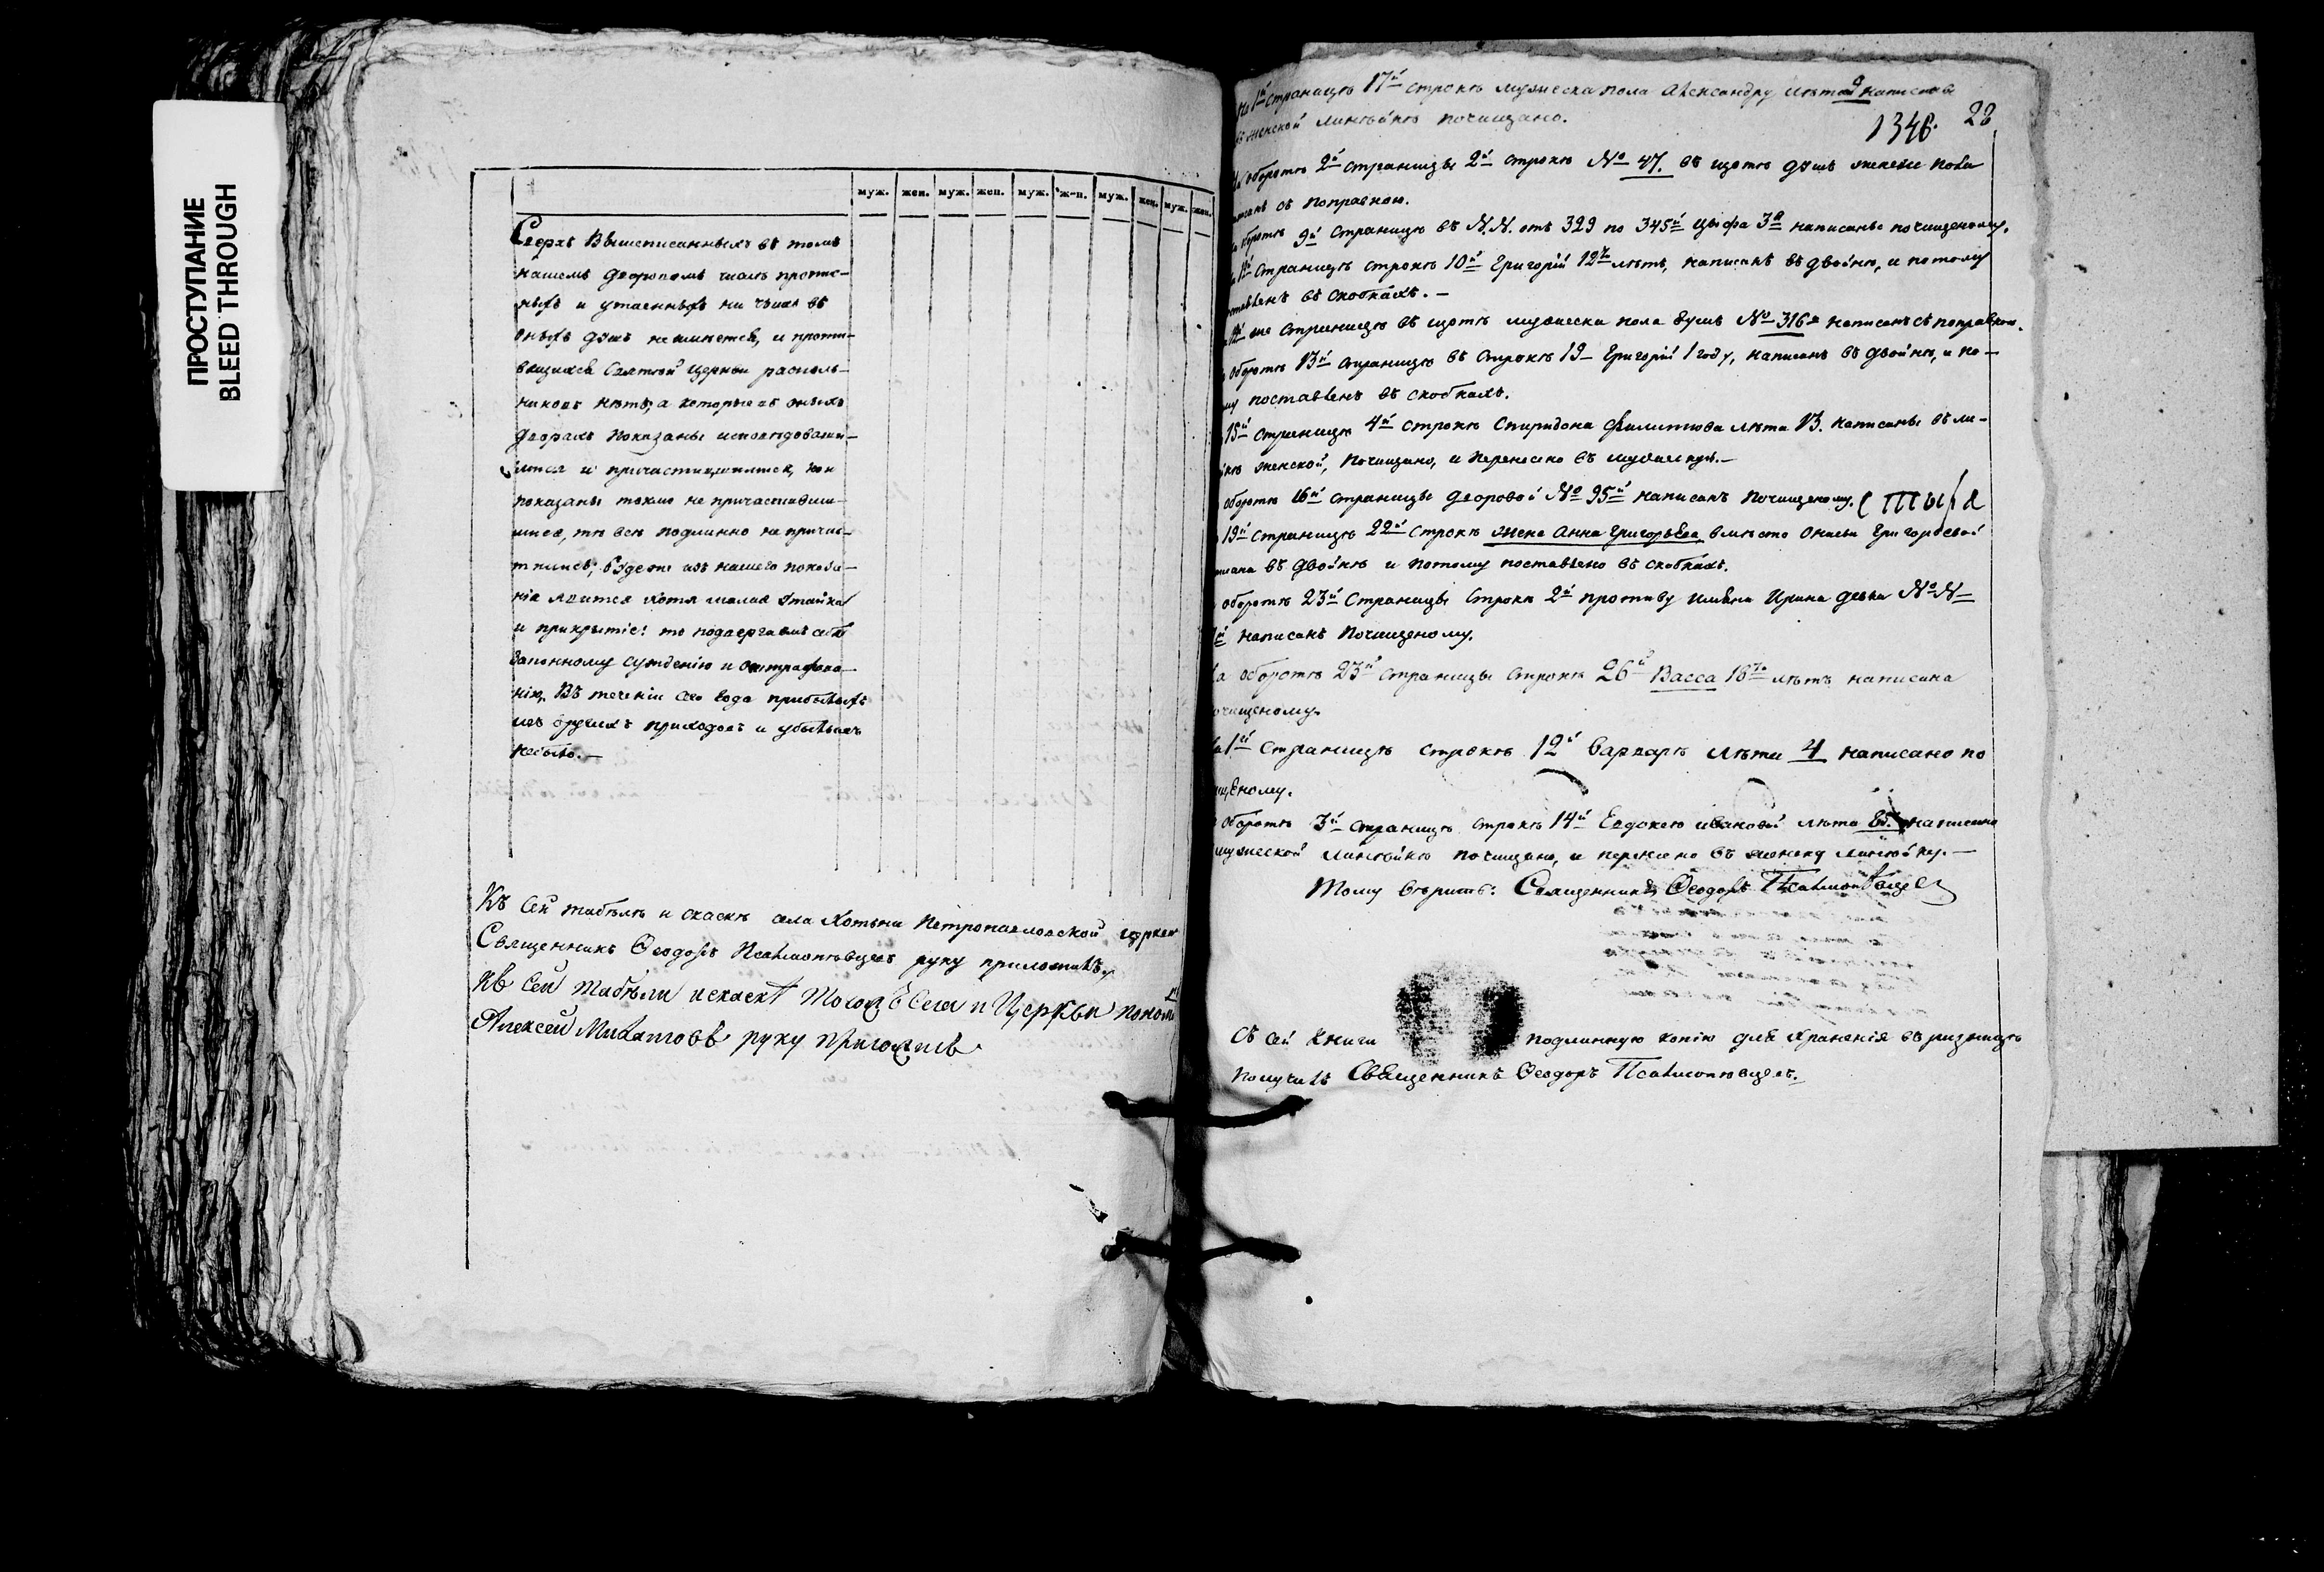 ПРОСТУПАНИЕ
BLEED THROUGH
муж. жен. муж. жен. муж. жен. муж. жен. муж. жен.
Сверхъ вышеписанныхъ въ томъ
нашемъ дворовомъ числѣ пропис-
ныхъ и утаенныхъ ни чьихъ въ
оныхъ душъ неимѣется, и проти-
вящихся Святой церкви расколь-
никовъ нѣтъ; а которые въ оныхъ
дворахъ показаны исповѣдовавши-
мися и
показаны токмо не причастивши-
мися, тѣ всѣ подлинно не причас-
тились; буде же изъ нашего показа-
нія явится хотя малая утайка
и прикрытіе: то подвергаемъ себя
законному сужденію и оштрафова-
нію, Въ теченіи сего года прибылыхъ
изъ другихъ приходовъ и убылыхъ
небыло.—
Къ сей табѣлѣ и скаскѣ села Хотѣни Петропавловской церкви
Священникъ Ѳеодоръ Псаломѣвцевъ руку приложилъ.
Къ сей табѣли и скаскѣ тогожъ села и Церкви поном
Алексей руку приложилъ.
1ѣ страницѣ 17й строкѣ мужеска пола Александру лѣта 9 написаны
женской линѣйкѣ почищано.
1346. 22
оборотѣ 2й страницы 2й строкѣ № 47. въ щетѣ душъ женска пола
съ поправкою.
оборотѣ 9й страницѣ въ N.N. отъ 329 по 345й цыфра 3а написаны почищеному.
страницѣ строкѣ 10й Григорій 12ть лѣтъ, написанъ въ двойнѣ, и потому
въ скобкахъ.—
же страницѣ въ щетѣ мужеска пола душъ № 316й написанъ съ поправкою.
оборотѣ 13й страницѣ въ строкѣ 19 Григорій 1 году, написанъ въ двойнѣ, и по-
му поставленъ въ скобкахъ.
15й страницѣ 4й строкѣ Спиридона Филипова лѣта 13. написаны въ ли-
женской, почищано, и перенесено въ мужескую.—
оборотѣ 16й страницы дворовой № 95й написанъ почищеному.
19й страницѣ 22й строкѣ жена Анна Григорьева, вмѣсто Григорьевой
въ двойнѣ и потому поставлено въ скобкахъ.
оборотѣ 23й страницы строкѣ 2й противу имѣни Ирина девка №N
написанъ почищеному.
оборотѣ 23й страницы строкѣ 26й Васса 16ть лѣтъ написана
почищеному.
1й страницѣ строкѣ 12й Варваръ лѣта 4 написано по
щеному.
оборотѣ 3й страницѣ строкѣ 14й Евдокею Ивановой лѣта написана
мужеской линѣйкѣ почищано, и перенесено въ женску линѣйку.—
Тому вѣритъ: Священникъ Ѳеодоръ Псаломѣвцевъ
Съ сей книги подлинную копію для храненія въ ризницѣ
получилъ Священникъ Ѳеодоръ Псаломѣвцевъ.